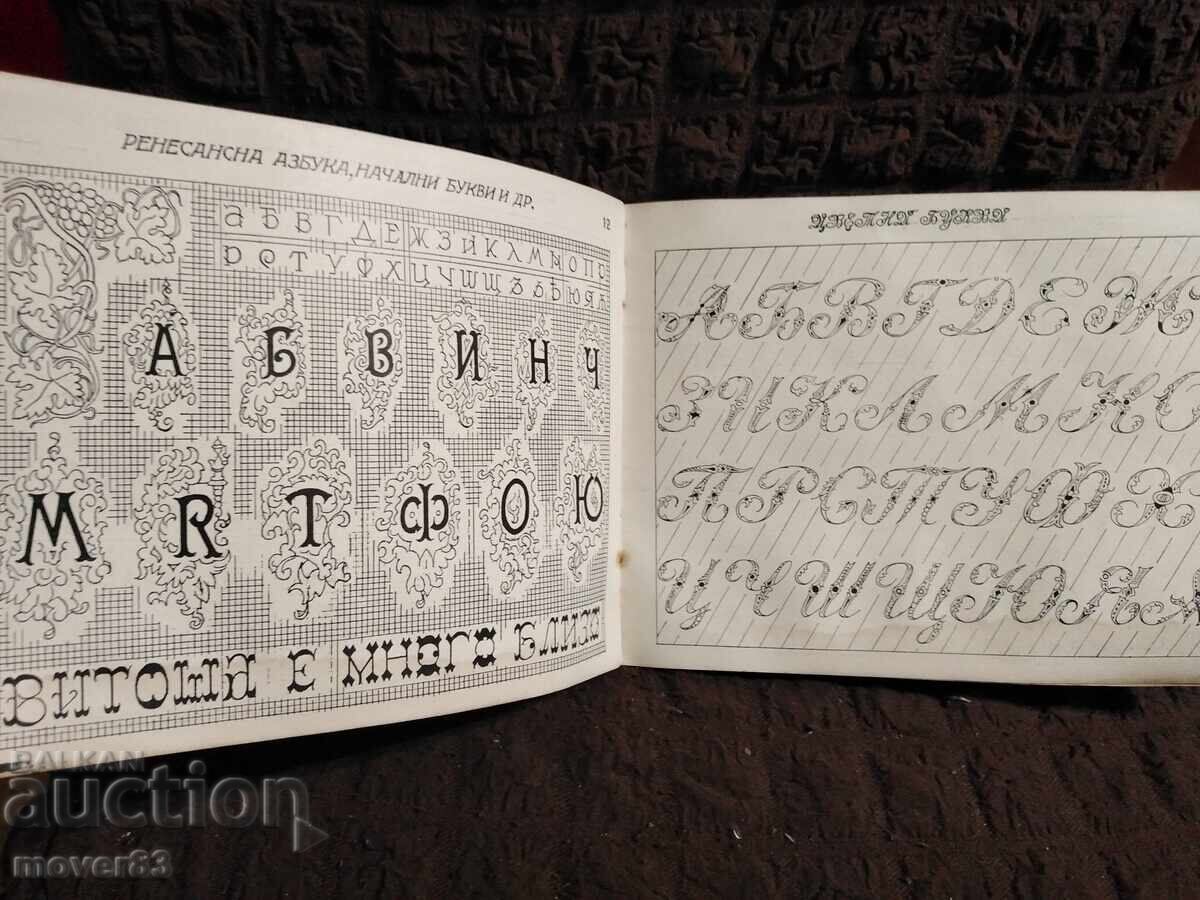 РЕНЕСАНСНА АЗБУКА, НАЧАЛНИ БУКВИ И ДР.
12
а Б В Г Д Е Ж З И К Л М Н О П
Р С Т У Ф Х Ц Ч Ш Щ Ъ Ь Ѣ Ю Я
А Б В И Н Ч
М Я Т Ф О Ю
ВИТОША Е МНОГО БЛИЗО
ЦВЕТНИ БУКВИ
А Б В Г Д Е Ж
З И К Л М Н О
П Р С Т У Ф Х
Ц Ч Ш Щ Ю Я
BALKAN
auction
mover83